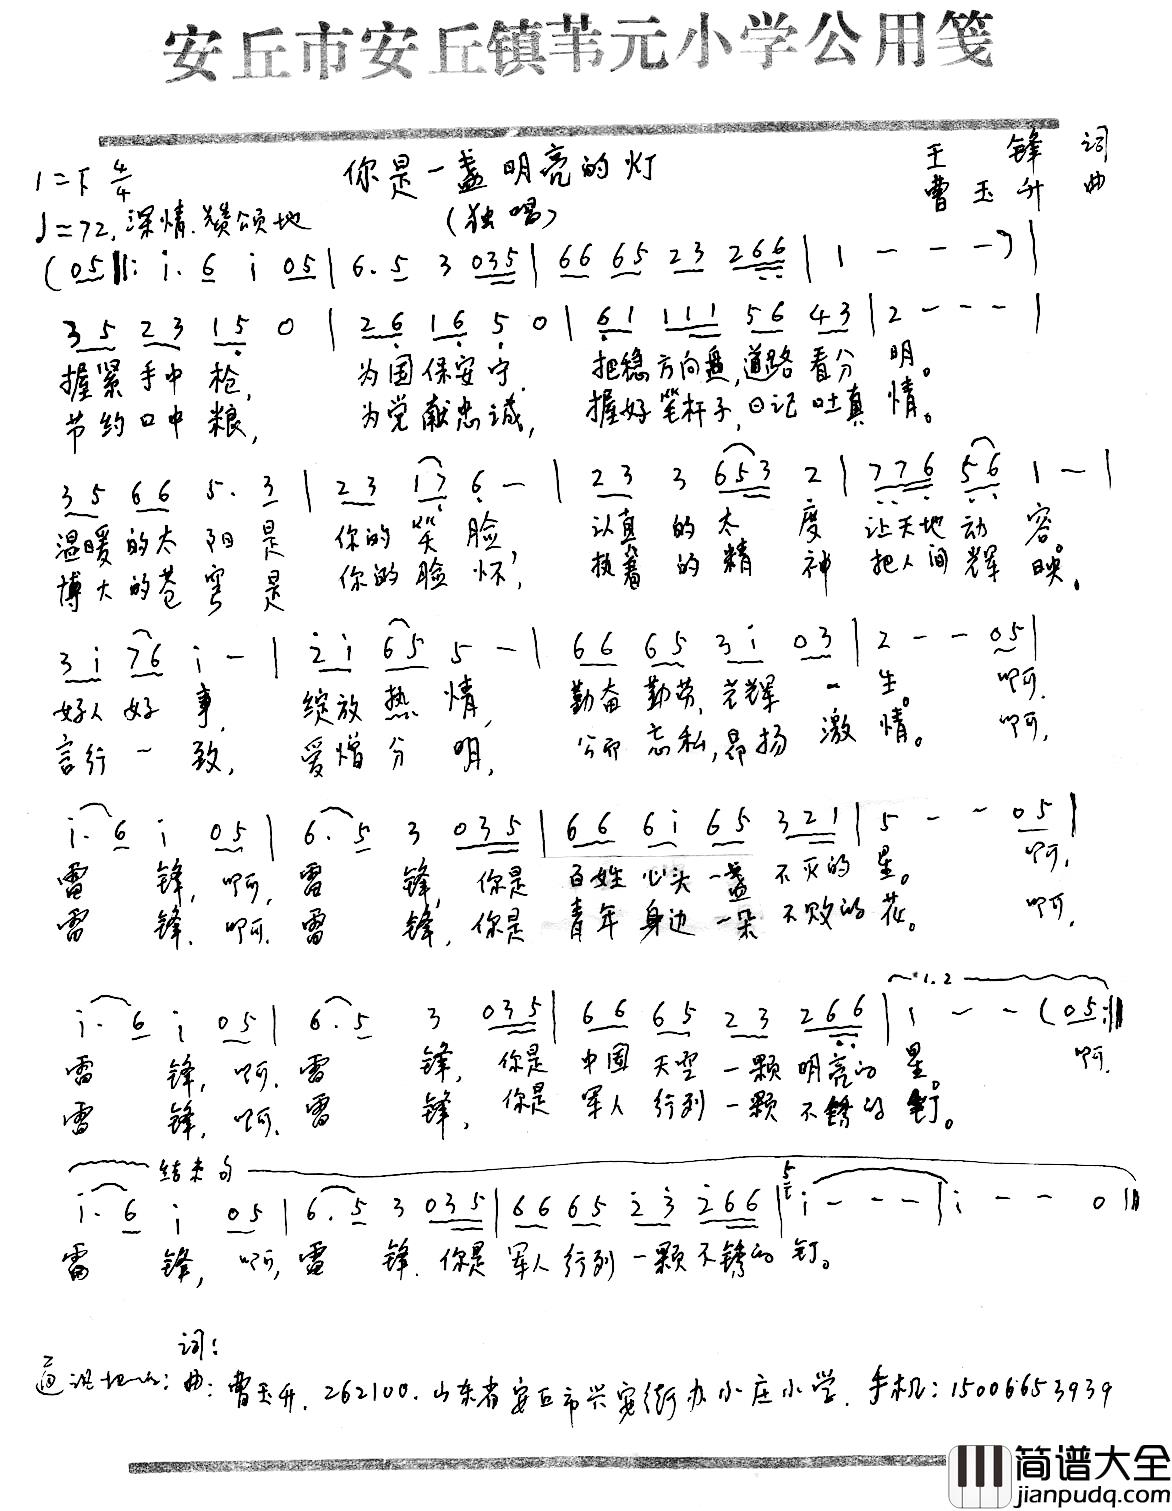 安丘市安丘镇苇元小学公用笺
你是一盏明亮的灯
王锋 词
1=F 4/4
曹玉升 曲
♩=72. 深情.赞颂地
(独唱)
(05‖: i. 6 i 05 | 6. 5 3 035 | 66 65 23 266 | 1 - - - ) |
35 23 15 0 | 26 16 5 0 | 61 111 56 43 | 2 - - - |
握紧手中枪, 为国保安宁. 把稳方向盘,道路看分明。
节约口中粮, 为党献忠诚, 握好笔杆子,日记吐真情。
35 66 5. 3 | 23 17 6 - | 23 3 653 2 | 776 56 1 - |
温暖的太阳是 你的笑脸, 认真的太度 让天地动容。
博大的苍穹是 你的脸怀, 执着的精神 把人间辉映。
3i 76 i - | 2i 65 5 - | 66 65 3i 03 | 2 - - 05 |
好人好事, 绽放热情, 勤奋勤劳,光辉一生。 啊.
言行一致, 爱憎分明, 公而忘私,昂扬激情。 啊,
i. 6 i 05 | 6. 5 3 035 | 66 6i 65 321 | 5 - - 05 |
雷锋, 啊, 雷锋, 你是百姓心头一盏不灭的星。 啊,
雷锋. 啊. 雷锋, 你是青年身边一朵不败的花。 啊,
1.2
i. 6 i 05 | 6. 5 3 035 | 66 65 23 266 | 1 - - (05:‖
雷锋, 啊. 雷锋, 你是中国天空一颗明亮的星。 啊.
雷锋, 啊. 雷锋, 你是军人行列一颗不锈的钉。
结束句
i. 6 i 05 | 6. 5 3 035 | 66 65 i3 i66 | 5 i - - - | i - - 0 ‖
雷锋, 啊, 雷锋. 你是军人行列一颗不锈的钉。
词:
通讯地址: 曲: 曹玉升. 262100. 山东省安丘市兴安街办小庄小学. 手机: 15006653939
简谱大全
jianpudq.com